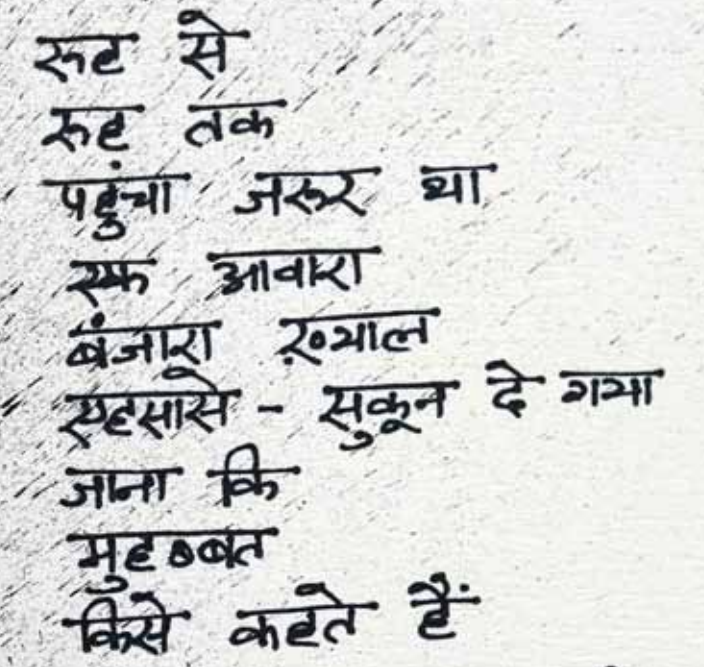 रूह से
रूह तक
पहुंचा जरूर था
एक आवारा
बंजारा ख़्याल
एहसासे - सुकून दे गया
जाना कि
मुहब्बत
किसे कहते हैं